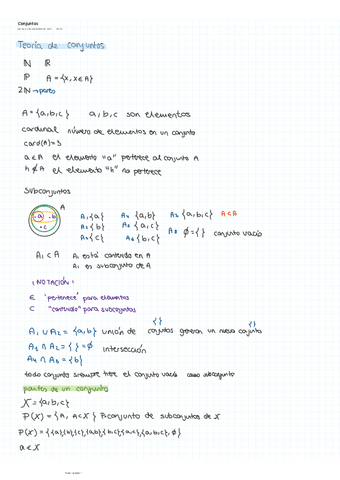 Conjuntos
Teoría de conjuntos
ℕ ℝ
ℙ A = {x, x∈A}
2ℕ → pares
A = {a,b,c} a, b, c son elementos
cardinal número de elementos en un conjunto
card(A)=3
a∈A el elemento "a" pertece al conjunto A
h∉A el elemento "h" no pertece
Subconjuntos
A
.a .b
.c
A₁ {a} A₄ {a,b} A₇ {a,b,c} A⊂A
A₂ {b} A₅ {a,c} A₈ ∅={} conjunto vacío
A₃ {c} A₆ {b,c}
A₁ ⊂ A A₁ está contenido en A
A₁ es subconjunto de A
! NOTACIÓN !
∈ "pertenece" para elementos
⊂ "contenido" para subconjuntos
{} {}
A₁ ∪ A₂ = {a,b} unión de conjuntos generan un nuevo conjunto
A₁ ∩ A₂ = {} = ∅ intersección
A₄ ∩ A₆ = {b}
todo conjunto siempre tiene el conjunto vacío como subconjunto
partes de un conjunto
X = {a,b,c}
P(X) = {A, A⊂X} P: conjunto de subconjuntos de X
P(X) = {{a}{b}{c},{a,b},{b,c},{a,c},{a,b,c},∅}
a∈X